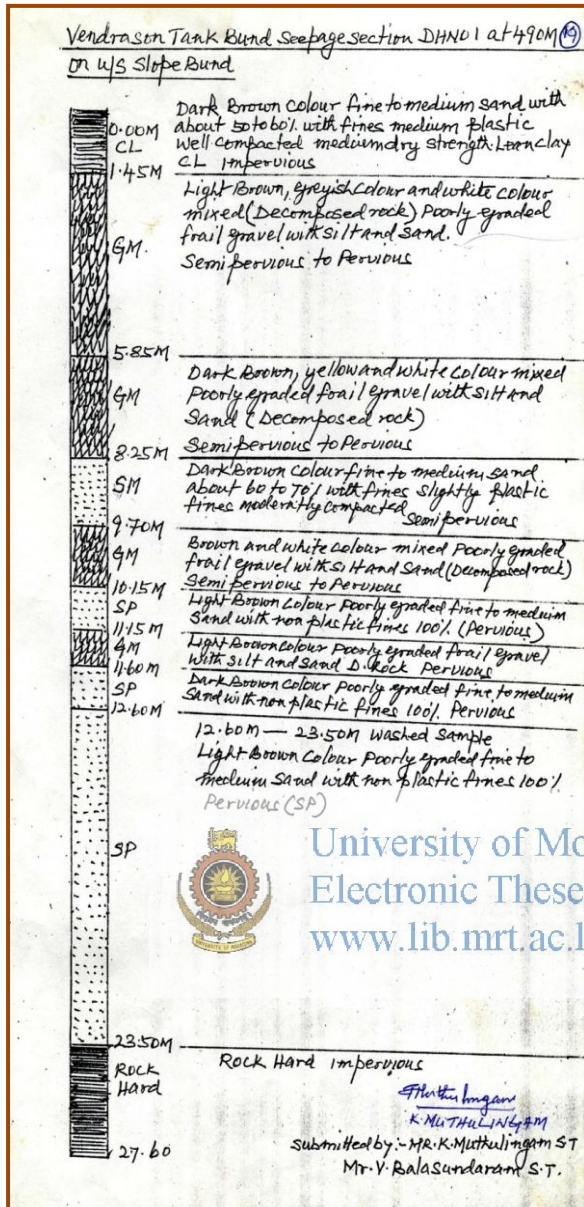 Vendrason Tank Bund Seepage section DHNO1 at 490M 19
on u/s Slope Bund
0.00M
CL
Dark Brown Colour fine to medium Sand with
about 50 to 60% with fines medium plastic
Well Compacted medium dry strength. Lean clay
CL impervious
1.45M
Light Brown, greyish Colour and white Colour
mixed (Decomposed rock) Poorly graded
frail gravel with silt and Sand.
GM.
Semi pervious to Pervious
5.85M
Dark Brown, yellow and white Colour mixed
Poorly graded frail gravel with silt and
GM
Sand (Decomposed rock)
Semi pervious to Pervious
8.25M
Dark Brown Colour fine to medium Sand
SM
about 60 to 70% with fines Slightly plastic
fines moderatly compacted
Semi pervious
9.70M
GM
Brown and white Colour mixed Poorly graded
frail gravel with silt and Sand (Decomposed rock)
Semi pervious to Pervious
10.15M
SP
Light Brown Colour Poorly graded fine to medium
Sand with non plastic fines 100% (Pervious)
11.15M
GM
Light Brown Colour Poorly graded frail gravel
with silt and Sand D. Rock Pervious
11.60M
SP
Dark Brown Colour Poorly graded fine to medium
Sand with non plastic fines 100% Pervious
12.60M
12.60M — 23.50M Washed Sample
Light Brown Colour Poorly graded fine to
medium Sand with non plastic fines 100%
Pervious (SP)
SP
University of Mo
Electronic These
www.lib.mrt.ac.l
UNIVERSITY OF MORATUWA
23.50M
ROCK
Hard
ROCK Hard impervious
K. MUTHULINGAM
27.60
Submitted by:- MR. K. Muthulingam S.T
Mr. V. Balasundaram S.T.